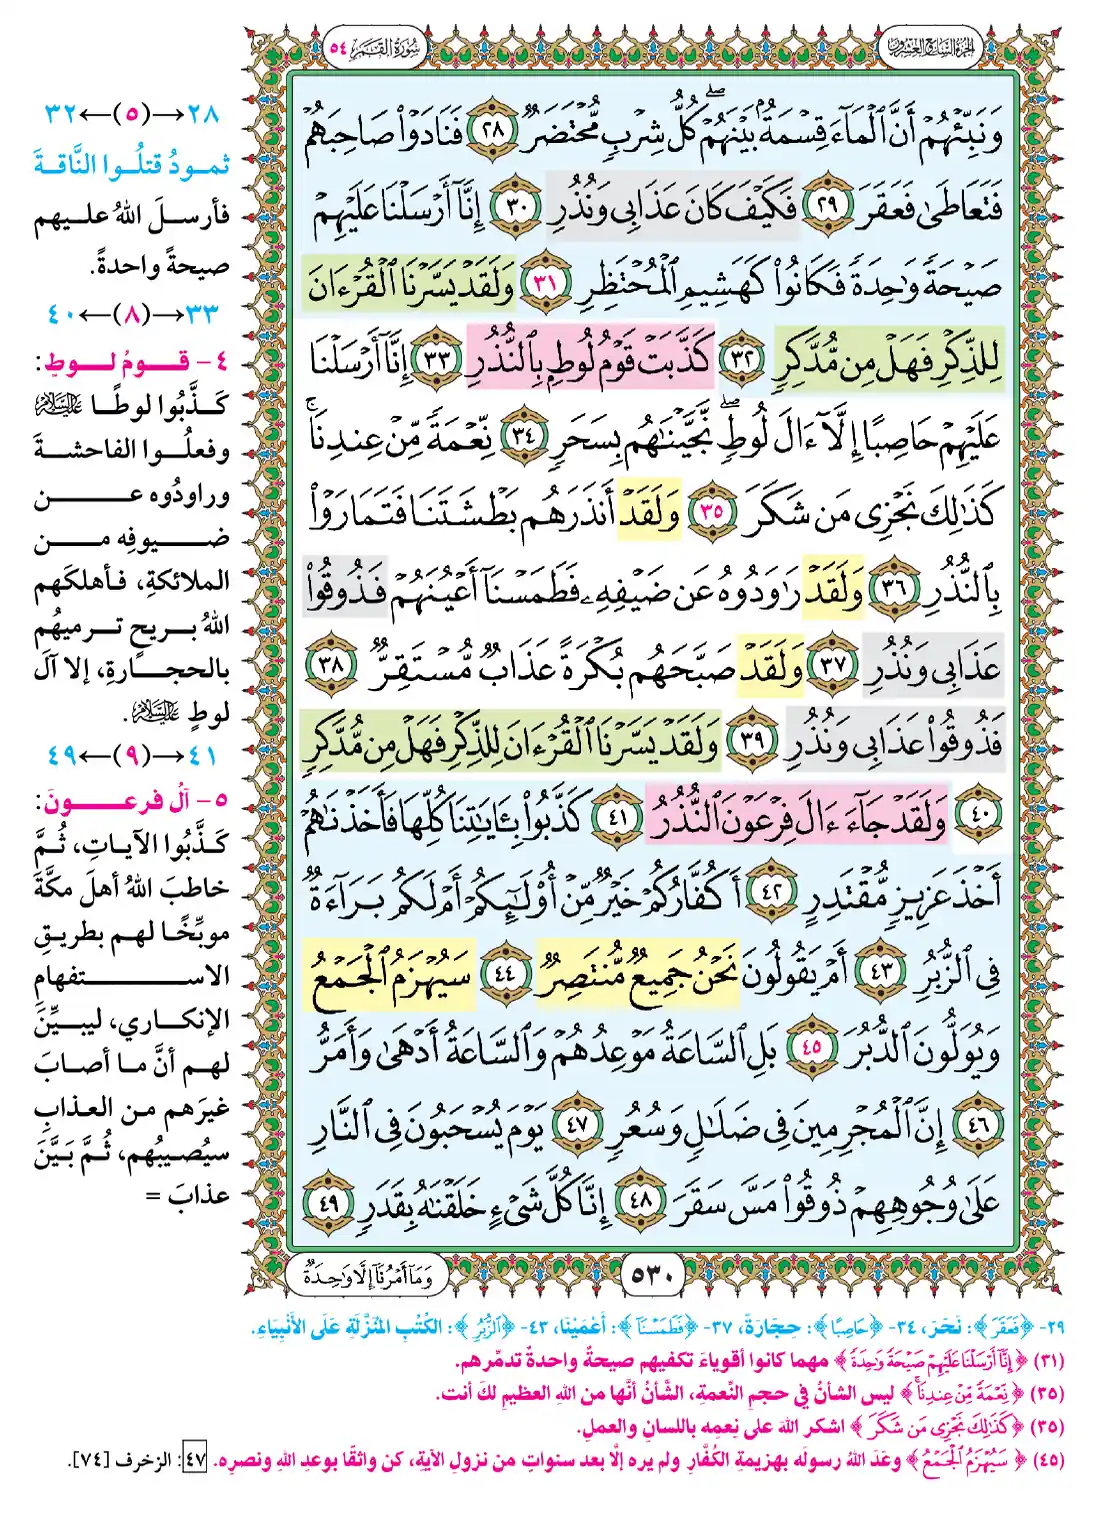 الجزء السابع والعشرون
سُورَةُ القَمَر ٥٤
وَنَبِّئْهُمْ أَنَّ ٱلْمَآءَ قِسْمَةٌۢ بَيْنَهُمْ ۖ كُلُّ شِرْبٍ مُّحْتَضَرٌ ٢٨ فَنَادَوْا۟ صَاحِبَهُمْ
فَتَعَاطَىٰ فَعَقَرَ ٢٩ فَكَيْفَ كَانَ عَذَابِى وَنُذُرِ ٣٠ إِنَّآ أَرْسَلْنَا عَلَيْهِمْ
صَيْحَةً وَٰحِدَةً فَكَانُوا۟ كَهَشِيمِ ٱلْمُحْتَظِرِ ٣١ وَلَقَدْ يَسَّرْنَا ٱلْقُرْءَانَ
لِلذِّكْرِ فَهَلْ مِن مُّدَّكِرٍ ٣٢ كَذَّبَتْ قَوْمُ لُوطٍۭ بِٱلنُّذُرِ ٣٣ إِنَّآ أَرْسَلْنَا
عَلَيْهِمْ حَاصِبًا إِلَّآ ءَالَ لُوطٍ ۖ نَّجَّيْنَٰهُم بِسَحَرٍ ٣٤ نِّعْمَةً مِّنْ عِندِنَا ۚ
كَذَٰلِكَ نَجْزِى مَن شَكَرَ ٣٥ وَلَقَدْ أَنذَرَهُم بَطْشَتَنَا فَتَمَارَوْا۟
بِٱلنُّذُرِ ٣٦ وَلَقَدْ رَٰوَدُوهُ عَن ضَيْفِهِۦ فَطَمَسْنَآ أَعْيُنَهُمْ فَذُوقُوا۟
عَذَابِى وَنُذُرِ ٣٧ وَلَقَدْ صَبَّحَهُم بُكْرَةً عَذَابٌ مُّسْتَقِرٌّ ٣٨
فَذُوقُوا۟ عَذَابِى وَنُذُرِ ٣٩ وَلَقَدْ يَسَّرْنَا ٱلْقُرْءَانَ لِلذِّكْرِ فَهَلْ مِن مُّدَّكِرٍ
٤٠ وَلَقَدْ جَآءَ ءَالَ فِرْعَوْنَ ٱلنُّذُرُ ٤١ كَذَّبُوا۟ بِـَٔايَٰتِنَا كُلِّهَا فَأَخَذْنَٰهُمْ
أَخْذَ عَزِيزٍ مُّقْتَدِرٍ ٤٢ أَكُفَّارُكُمْ خَيْرٌ مِّنْ أُو۟لَٰٓئِكُمْ أَمْ لَكُم بَرَآءَةٌ
فِى ٱلزُّبُرِ ٤٣ أَمْ يَقُولُونَ نَحْنُ جَمِيعٌ مُّنتَصِرٌ ٤٤ سَيُهْزَمُ ٱلْجَمْعُ
وَيُوَلُّونَ ٱلدُّبُرَ ٤٥ بَلِ ٱلسَّاعَةُ مَوْعِدُهُمْ وَٱلسَّاعَةُ أَدْهَىٰ وَأَمَرُّ
٤٦ إِنَّ ٱلْمُجْرِمِينَ فِى ضَلَٰلٍ وَسُعُرٍ ٤٧ يَوْمَ يُسْحَبُونَ فِى ٱلنَّارِ
عَلَىٰ وُجُوهِهِمْ ذُوقُوا۟ مَسَّ سَقَرَ ٤٨ إِنَّا كُلَّ شَىْءٍ خَلَقْنَٰهُ بِقَدَرٍ ٤٩
٥٣٠
وَمَآ أَمْرُنَآ إِلَّا وَٰحِدَةٌ
٢٨→(٥)←٣٢
ثمودُ قتلُوا النَّاقةَ
فأرسلَ اللهُ عليهم
صيحةً واحدةً.
٣٣→(٨)←٤٠
٤- قومُ لوطٍ:
كذَّبُوا لوطًا عليه السلام
وفعلُوا الفاحشةَ
وراودُوه عن
ضيوفِه من
الملائكةِ، فأهلكَهم
اللهُ بريحٍ ترميهُم
بالحجارةِ، إلا آلَ
لوطٍ عليه السلام.
٤١→(٩)←٤٩
٥- آلُ فرعونَ:
كذَّبُوا الآياتِ، ثُمَّ
خاطبَ اللهُ أهلَ مكَّةَ
موبِّخًا لهم بطريقِ
الاستفهامِ
الإنكاري، ليبيِّنَ
لهم أنَّ ما أصابَ
غيرَهم من العذابِ
سيُصيبُهم، ثُمَّ بَيَّنَ
عذابَ =
٢٩- ﴿فَعَقَرَ﴾: نَحَرَ، ٣٤- ﴿حَاصِبًا﴾: حِجَارَةً، ٣٧- ﴿فَطَمَسْنَآ﴾: أَعْمَيْنَا، ٤٣- ﴿ٱلزُّبُرِ﴾: الكُتُبِ المُنَزَّلَةِ عَلَى الأَنْبِيَاءِ.
(٣١) ﴿إِنَّآ أَرْسَلْنَا عَلَيْهِمْ صَيْحَةً وَٰحِدَةً﴾ مهما كانوا أقوياءَ تكفيهم صيحةٌ واحدةٌ تدمِّرهم.
(٣٥) ﴿نِّعْمَةً مِّنْ عِندِنَا ۚ﴾ ليس الشأنُ في حجمِ النِّعمةِ، الشَّأنُ أنَّها من اللهِ العظيمِ لكَ أنت.
(٣٥) ﴿كَذَٰلِكَ نَجْزِى مَن شَكَرَ﴾ اشكر اللهَ على نِعمِه باللسانِ والعملِ.
(٤٥) ﴿سَيُهْزَمُ ٱلْجَمْعُ﴾ وعَدَ اللهُ رسولَه بهزيمةِ الكُفَّارِ ولم يره إلَّا بعد سنواتٍ من نزولِ الآيةِ، كن واثقًا بوعدِ اللهِ ونصرِه. ٤٧: الزخرف [٧٤].